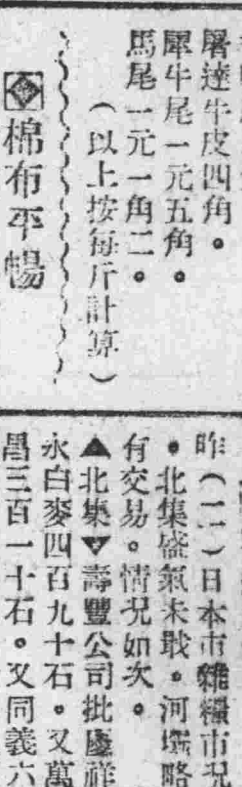 屠達牛皮四角。
犀牛尾一元五角。
馬尾一元一角二。
（以上按每斤計算）
棉布平暢
昨（二一）日本市雜糧市況
。北集盛氣未戢。河壩略
有交易。情況如次。
▲北集▼壽豐公司批慶祥
永白麥四百九十石。又萬
昌三百一十石。又同義六